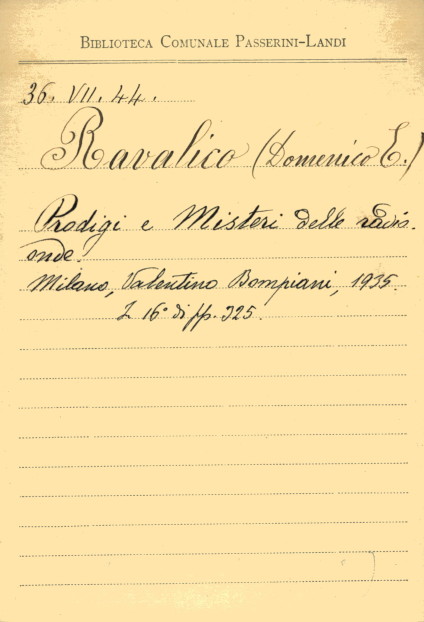 BIBLIOTECA COMUNALE PASSERINI-LANDI
36. VII. 44.
Ravalico (Domenico E.)
Prodigi e Misteri delle radio-
onde.
Milano, Valentino Bompiani, 1935.
I 16° di pp. 325.